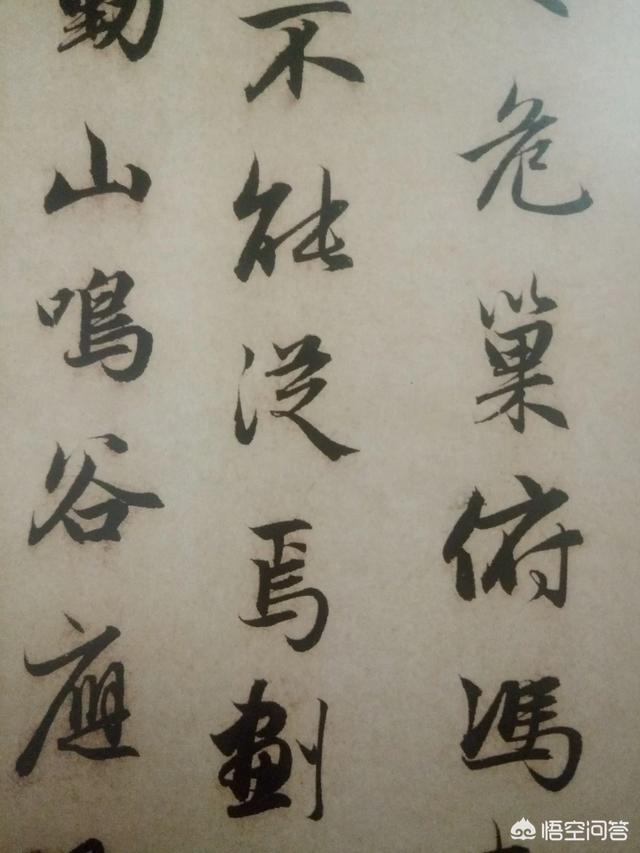 危巢俯馮
不能從焉劃
動山鳴谷應
悟空问答